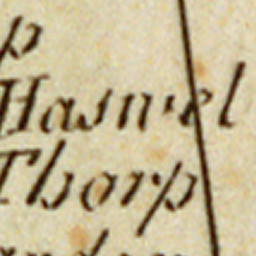 p
Haswel
Thorp